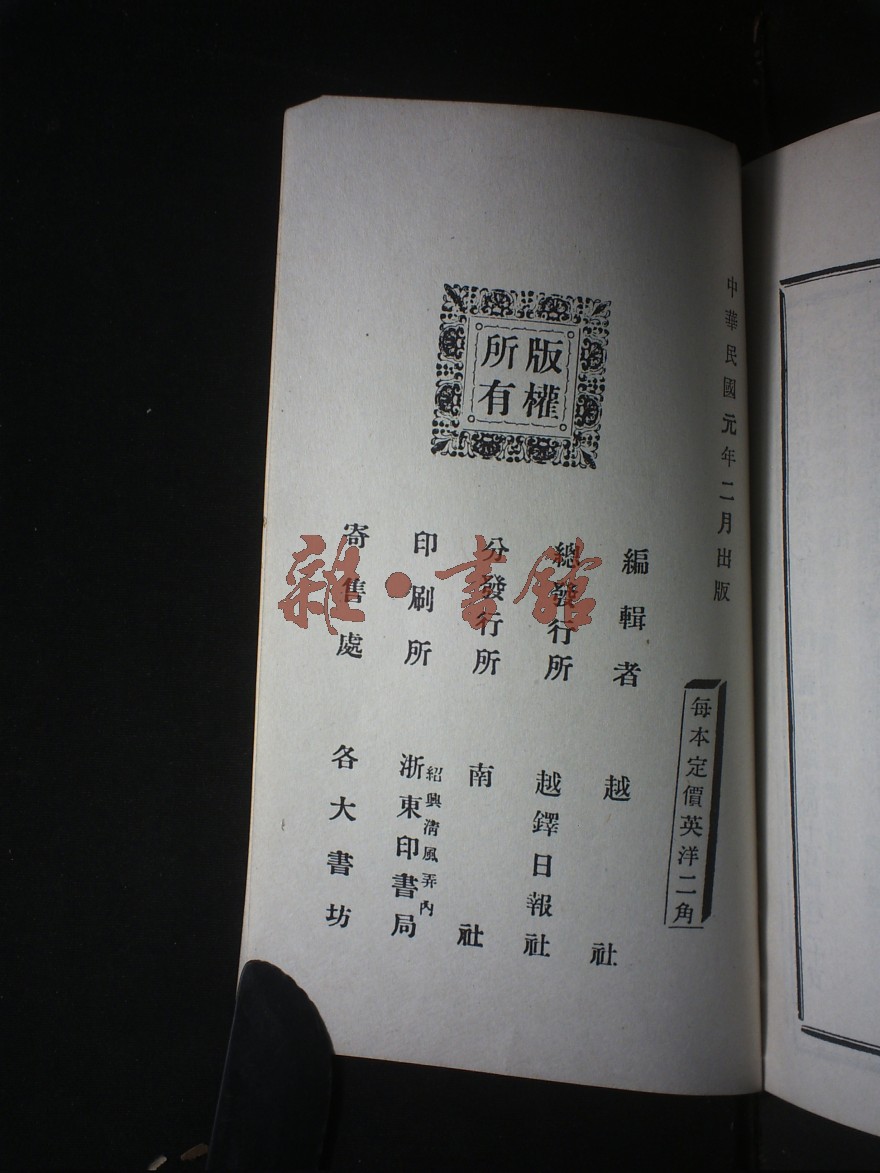 中華民國元年二月出版
每本定價英洋二角
版權
所有
編輯者 越社
總發行所 越鐸日報社
分發行所 南社
印刷所 紹興清風弄內
浙東印書局
寄售處 各大書坊
雜·書館